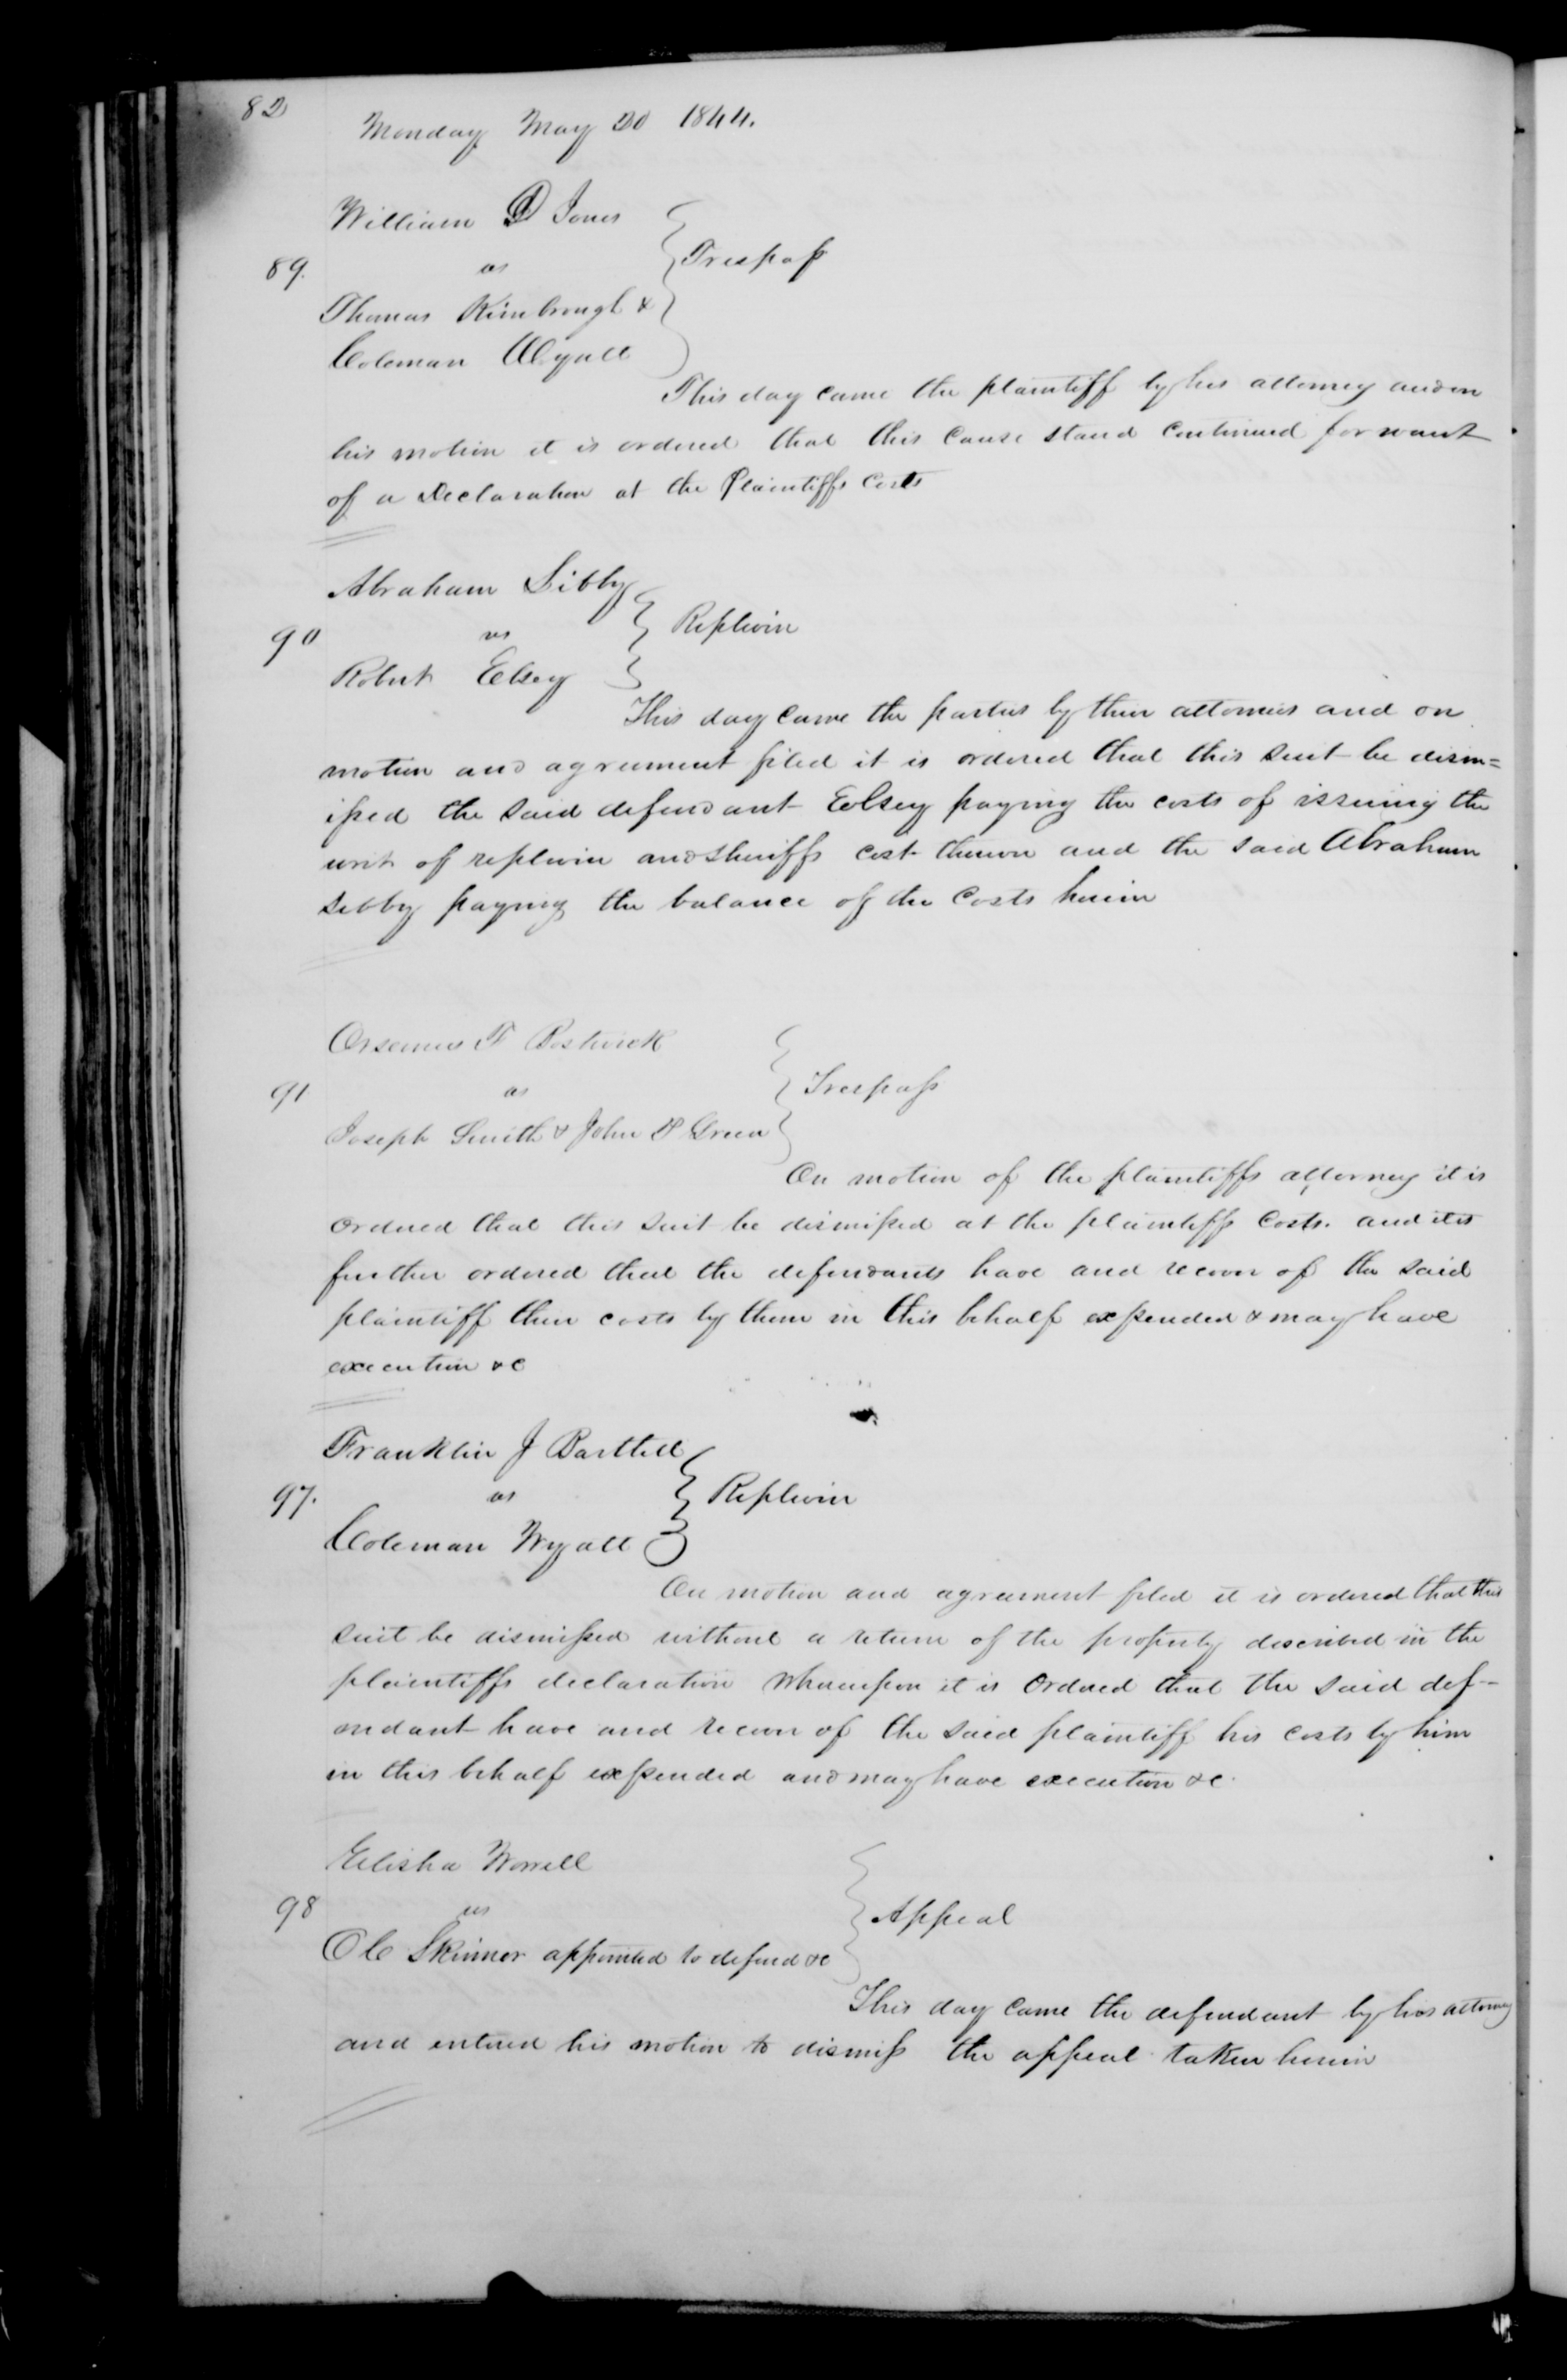 82
Monday May 20 1844.
William D Jones
89. vs } Trespass
Thomas Kimbrough &
Coleman Wyatt
This day came the plaintiff by his attorney and on
his motion it is ordered that this cause stand continued for want
of a Declaration at the Plaintiffs costs
Abraham Libby
90 vs } Replevin
Robert Elsey
This day came the parties by their attornies and on
motion and agreement filed it is ordered that this suit be dism=
issed the said defendant Elsey paying the costs of issuing the
writ of replevin and sheriffs cost thereon and the said Abraham
Libby paying the balance of the costs herein
Orsemus F Bostwick
91 vs } Trespass
Joseph Smith & John P Green
On motion of the plaintiffs attorney it is
ordered that this suit be dismissed at the plaintiffs costs. and it is
further ordered that the defendants have and recover of the said
plaintiff their costs by them in this behalf expended & may have
execution &c
Franklin J Bartlett
97. vs } Replevin
Coleman Wyatt
On motion and agreement filed it is ordered that this
suit be dismissed without a return of the property described in the
plaintiffs declaration whereupon it is ordered that the said def-
endant have and recover of the said plaintiff his costs by him
in this behalf expended and may have execution &c.
Elisha Worrell
98 vs } Appeal
O C Skinner appointed to defend &c
This day came the defendant by his attorney
and entered his motion to dismiss the appeal taken herein